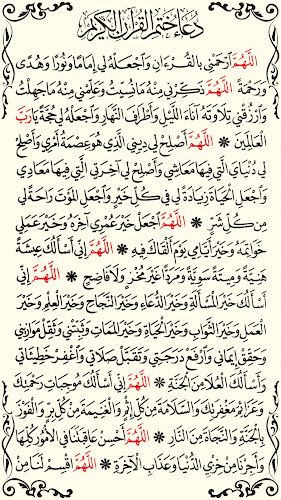 دُعَاءُ خَتْمِ القُرْآنِ الكَرِيمِ
اللَّهُمَّ ارْحَمْنِي بِالقُرْءَانِ وَاجْعَلْهُ لِي إِمَامًا وَنُورًا وَهُدًى
وَرَحْمَةً اللَّهُمَّ ذَكِّرْنِي مِنْهُ مَا نَسِيتُ وَعَلِّمْنِي مِنْهُ مَا جَهِلْتُ
وَارْزُقْنِي تِلَاوَتَهُ آنَاءَ اللَّيْلِ وَأَطْرَافَ النَّهَارِ وَاجْعَلْهُ لِي حُجَّةً يَا رَبَّ
العَالَمِينَ ❋ اللَّهُمَّ أَصْلِحْ لِي دِينِي الَّذِي هُوَ عِصْمَةُ أَمْرِي وَأَصْلِحْ
لِي دُنْيَايَ الَّتِي فِيهَا مَعَاشِي وَأَصْلِحْ لِي آخِرَتِي الَّتِي فِيهَا مَعَادِي
وَاجْعَلِ الحَيَاةَ زِيَادَةً لِي فِي كُلِّ خَيْرٍ وَاجْعَلِ المَوْتَ رَاحَةً لِي
مِنْ كُلِّ شَرٍّ ❋ اللَّهُمَّ اجْعَلْ خَيْرَ عُمْرِي آخِرَهُ وَخَيْرَ عَمَلِي
خَوَاتِمَهُ وَخَيْرَ أَيَّامِي يَوْمَ أَلْقَاكَ فِيهِ ❋ اللَّهُمَّ إِنِّي أَسْأَلُكَ عِيشَةً
هَنِيَّةً وَمِيتَةً سَوِيَّةً وَمَرَدًّا غَيْرَ مُخْزٍ وَلَا فَاضِحٍ ❋ اللَّهُمَّ إِنِّي
أَسْأَلُكَ خَيْرَ المَسْأَلَةِ وَخَيْرَ الدُّعَاءِ وَخَيْرَ النَّجَاحِ وَخَيْرَ العِلْمِ وَخَيْرَ
العَمَلِ وَخَيْرَ الثَّوَابِ وَخَيْرَ الحَيَاةِ وَخَيْرَ المَمَاتِ وَثَبِّتْنِي وَثَقِّلْ مَوَازِينِي
وَحَقِّقْ إِيمَانِي وَارْفَعْ دَرَجَتِي وَتَقَبَّلْ صَلَاتِي وَاغْفِرْ خَطِيئَاتِي
وَأَسْأَلُكَ العُلَا مِنَ الجَنَّةِ ❋ اللَّهُمَّ إِنِّي أَسْأَلُكَ مُوجِبَاتِ رَحْمَتِكَ
وَعَزَائِمَ مَغْفِرَتِكَ وَالسَّلَامَةَ مِنْ كُلِّ إِثْمٍ وَالغَنِيمَةَ مِنْ كُلِّ بِرٍّ وَالفَوْزَ
بِالجَنَّةِ وَالنَّجَاةَ مِنَ النَّارِ ❋ اللَّهُمَّ أَحْسِنْ عَاقِبَتَنَا فِي الأُمُورِ كُلِّهَا
وَأَجِرْنَا مِنْ خِزْيِ الدُّنْيَا وَعَذَابِ الآخِرَةِ ❋ اللَّهُمَّ اقْسِمْ لَنَا مِنْ